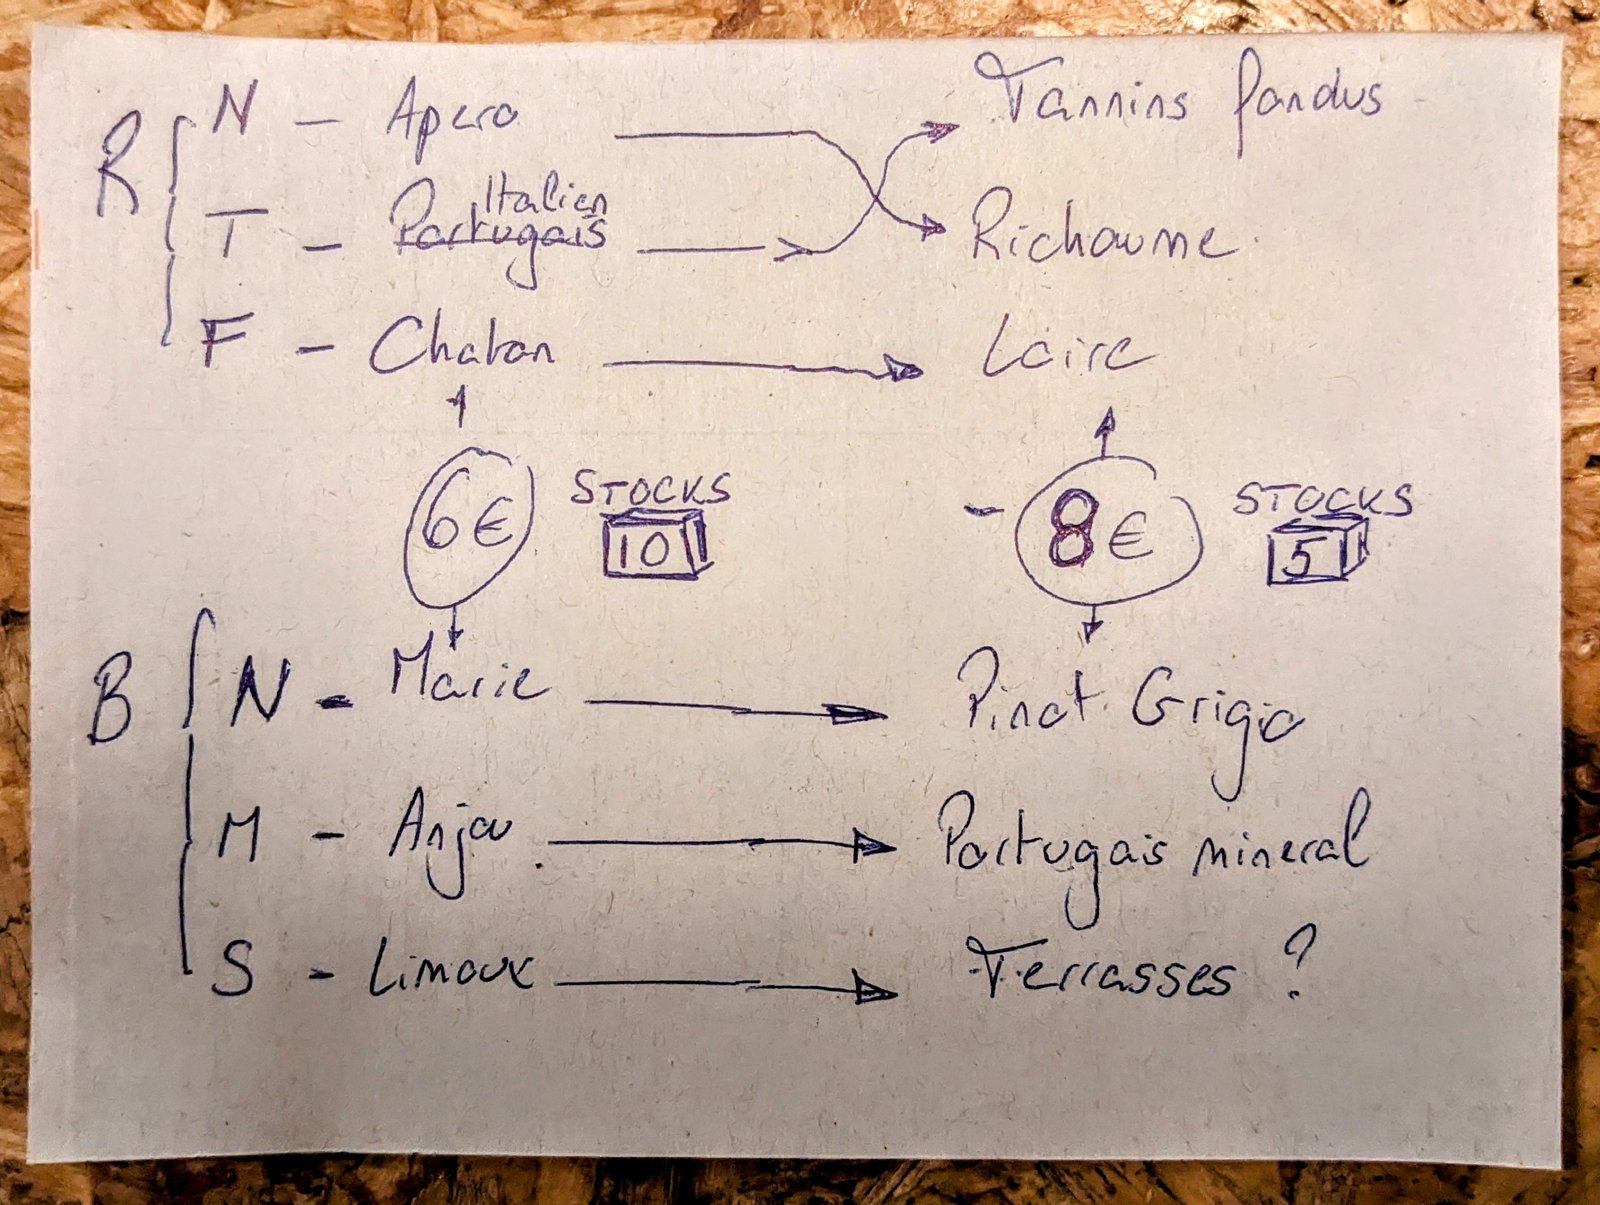 R N - Apero Tannins fondus
T - Portugais Italien Richaume
F - Chaton Loire
6€ STOCKS 10 - 8€ STOCKS 5
B N - Marie Pinot Grigio
M - Anjou Portugais mineral
S - Limoux Terrasses ?